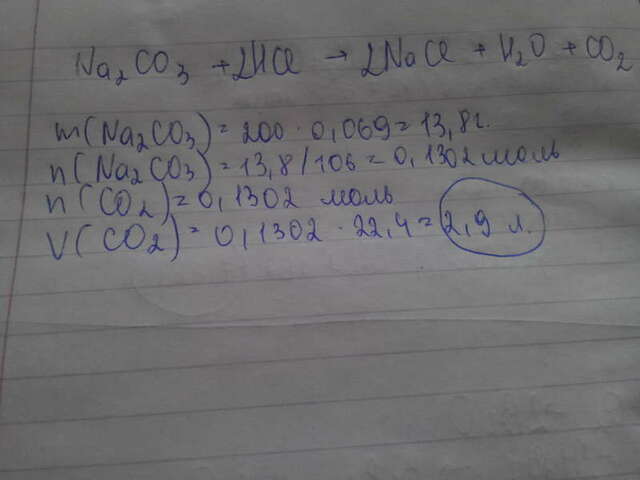 Na₂CO₃ + 2HCl → 2NaCl + H₂O + CO₂
m(Na₂CO₃) = 200 · 0,069 = 13,8 г.
n(Na₂CO₃) = 13,8/106 = 0,1302 моль
n(CO₂) = 0,1302 моль
V(CO₂) = 0,1302 · 22,4 = 2,9 л.